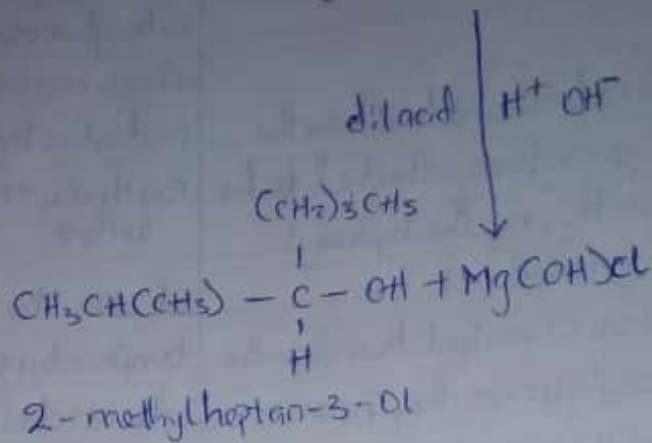 dil acid H⁺ OH⁻
(CH₂)₃CH₃
CH₃CH(CH₃) — C — OH + Mg(OH)Cl
H
2 - methylheptan-3-Ol